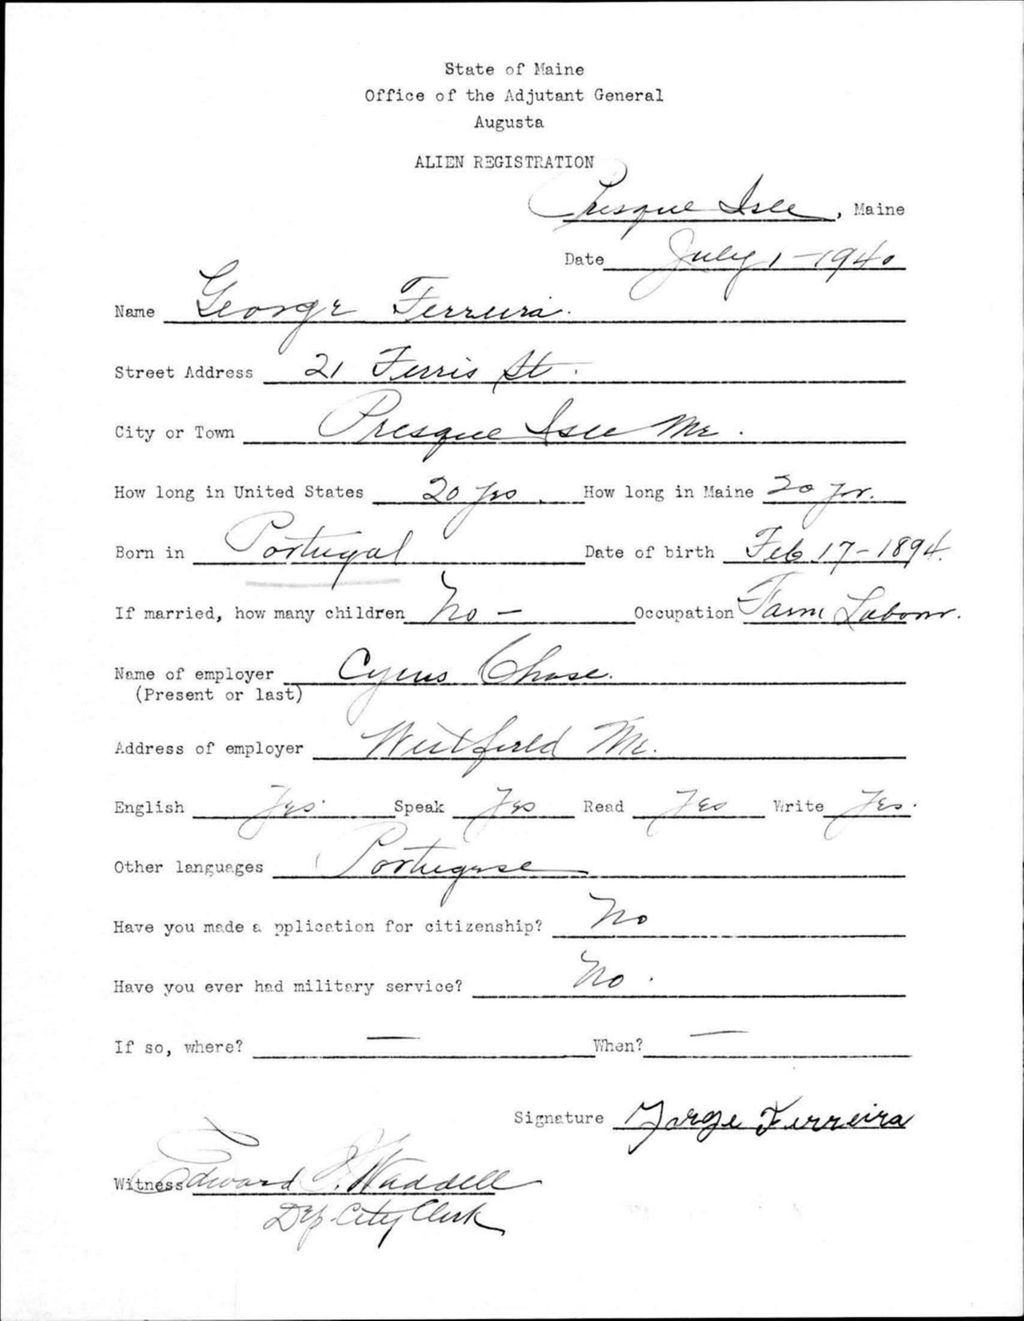 State of Maine
Office of the Adjutant General
Augusta
ALIEN REGISTRATION
Presque Isle, Maine
Date July 1-1940
Name George Ferreira.
Street Address 21 Ferris St.
City or Town Presque Isle Me.
How long in United States 20 yrs. How long in Maine 20 yr.
Born in Portugal Date of birth Feb 17-1894.
If married, how many children No - Occupation Farm Labour.
Name of employer Cyrus Chase.
(Present or last)
Address of employer Westfield Me.
English Yes. Speak Yes Read Yes Write Yes.
Other languages Portuguese
Have you made a pplication for citizenship? No
Have you ever had military service? No.
If so, where? — When? —
Signature Jorge Ferreira
Witness Edward J. Waddell
Dep-City Clerk